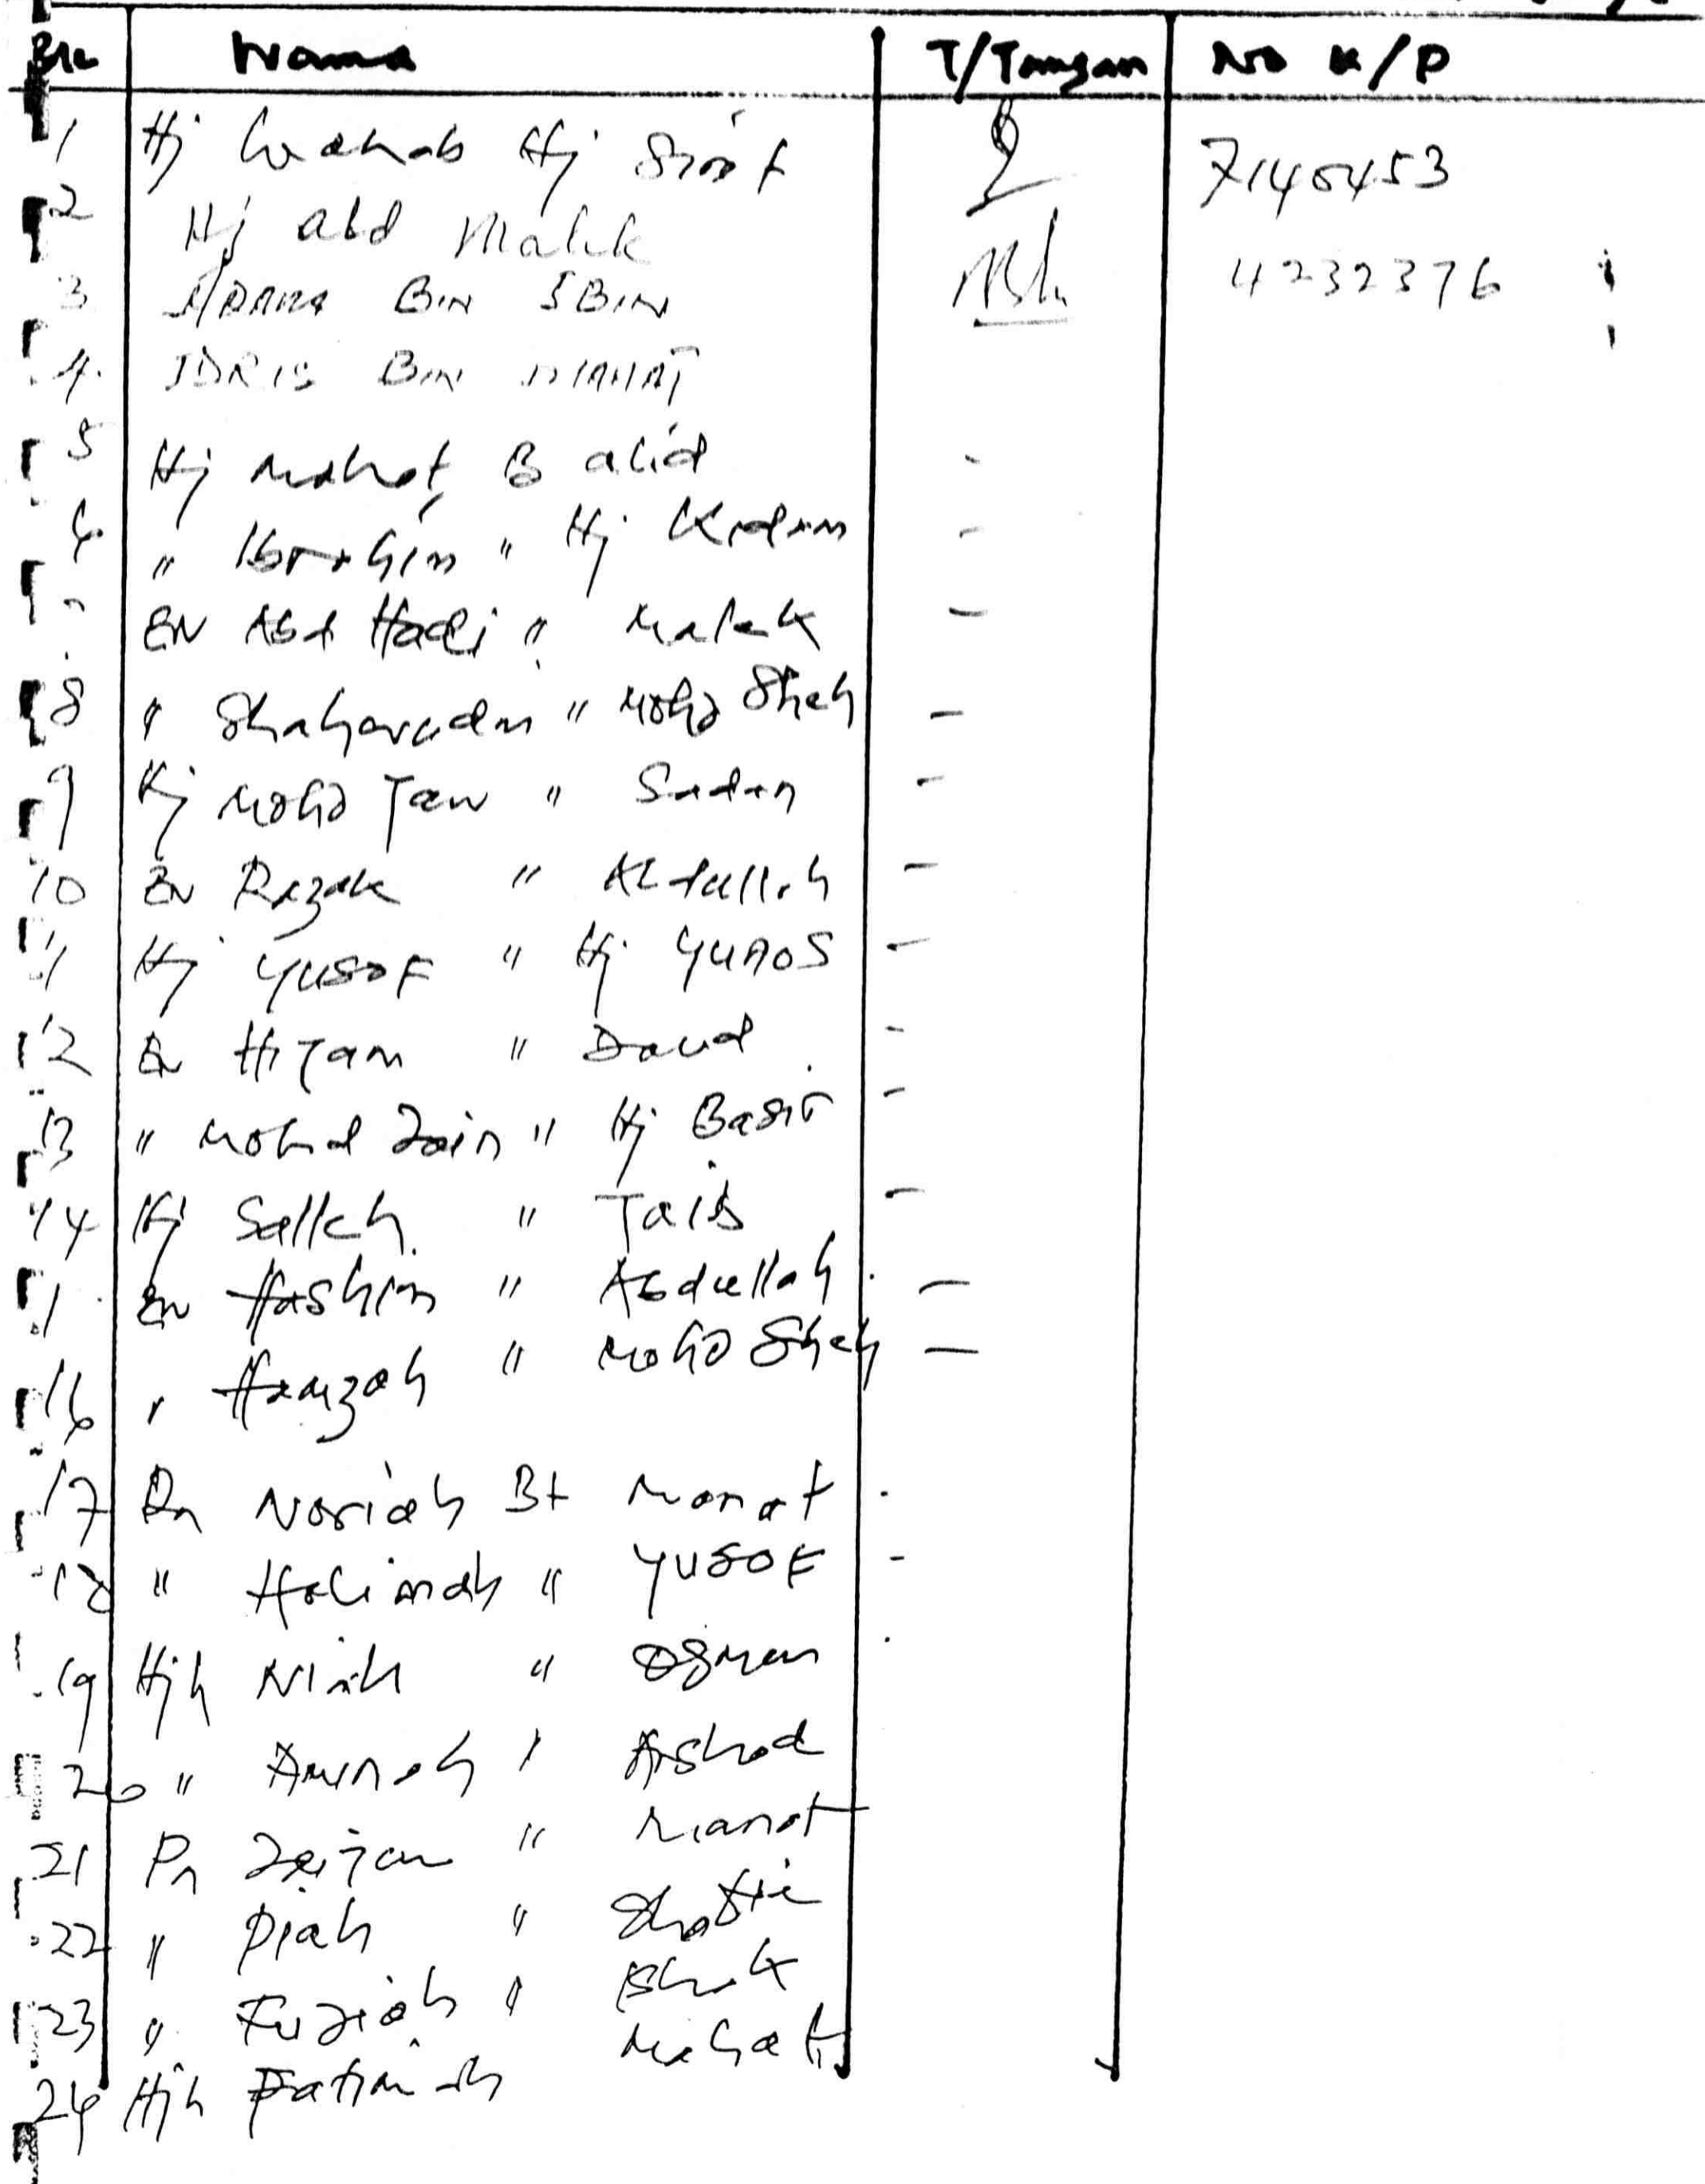 Bil Nama T/Tangan No K/P
1 Hj Wahab Hj Sirat 7145453
2 Hj Abd Malik
3 BIN 4232376
4. IDRIS BIN MAHAT
5 Hj Mahat B Alid
6 " Ibrahim " Hj Kadam -
EN Abd Hadi " Malek -
8 " Shaharudin " Mohd Sheh -
9 Hj Mohd Jaw " Sudin -
10 En Razak " Abdullah -
11 Hj YUSOF " Hj YUNOS -
12 En Hizam " Daud -
13 " Mohd Zain " Hj Basir -
14 Hj Salleh " Taib -
En Hashim " Abdullah -
16 " Hamzah " Mohd Sheh -
17 Pn Noriah Bt Manat
18 " Halimah " YUSOF -
19 Hjh Niah " Osman
20 " Aminah " Arshad
21 Pn Zaiton " Manat
22 " Piah " Shafie
23 " Fuziah " Ishak
24 Hjh Fatimah Mahat